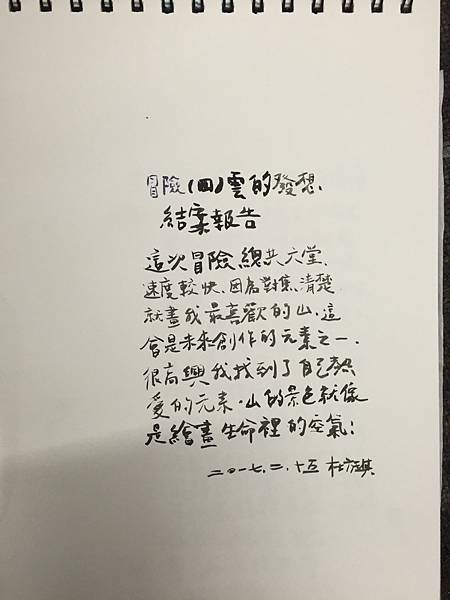 冒險(四)雲的發想、
結案報告
這次冒險總共六堂、
速度較快、因為對焦清楚
就畫我最喜歡的山、這
會是未來創作的元素之一、
很高興我找到了自己熱
愛的元素、山的景色就像
是繪畫生命裡的空氣！
二〇一七、二、十五 杜